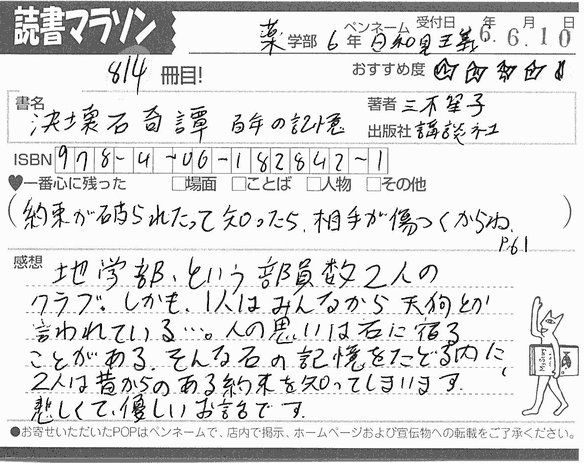 読書マラソン
薬学部 6年 ペンネーム 日和見主義 受付日 6年6月10日
814冊目!
おすすめ度 ☆☆☆☆
書名 決壊石奇譚 百年の記憶
著者名 三木笙子
出版社 講談社
ISBN 978-4-06-182842-1
♥一番心に残った □場面 □ことば □人物 □その他
(約束が破られたって知ったら、相手が傷つくからね。
P.61
感想 地学部、という部員数2人の
クラブ。しかも、1人はみんなから天狗とか
言われている…。人の思いは石に宿る
ことがある。そんな石の記憶をたどる内に、
2人は昔からのある約束を知ってしまいます。
悲しくて、優しいお話です。
●お寄せいただいたPOPはペンネームで、店内で掲示、ホームページおよび宣伝物への転載をご了承ください。